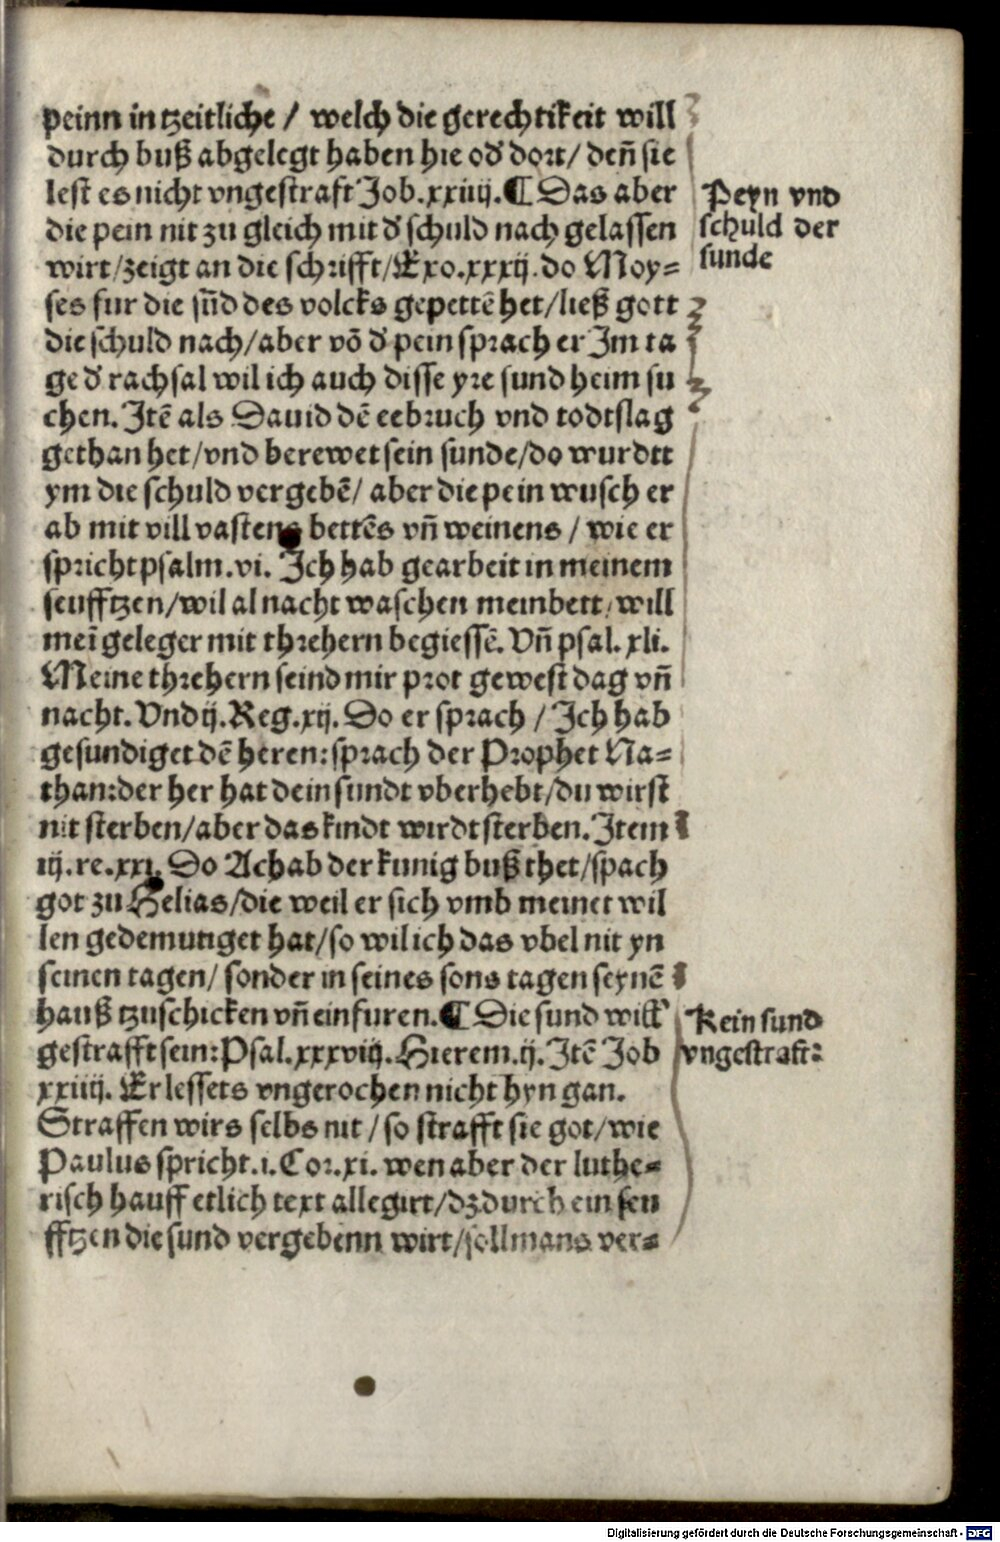 peinn in tzeitliche / welch die gerechtikeit will
durch buß abgelegt haben hie od' dort / deñ sie
lest es nicht vngestraft Job.xxiiij.¶ Das aber
die pein nit zu gleich mit d' schuld nach gelassen
wirt/zeigt an die schrifft/Exo.xxxij.do Moy=
ses fur die sũd des volcks gepettē het/ließ gott
die schuld nach/aber vō d' pein sprach er Im ta
ge d' rachsal wil ich auch disse yre sund heim su
chen. Itē als Dauid dē eebruch vnd todtslag
gethan het/vnd berewet sein sunde/do wurdtt
ym die schuld vergebē/ aber die pein wusch er
ab mit vill vastens bettēs vñ weinens / wie er
spricht psalm.vi. Ich hab gearbeit in meinem
seufftzen/wil al nacht waschen mein bett/will
meī geleger mit threhern begiessē. Vñ psal.xli.
Meine threhern seind mir prot gewest dag vñ
nacht. Vnd ij.Reg.xij. Do er sprach / Ich hab
gesundiget dē heren:sprach der Prophet Na=
than:der her hat dein sundt vberhebt/du wirst
nit sterben/aber das kindt wirdt sterben. Item
iij.re.xxi. Do Achab der kunig buß thet/spach
got zu Helias/die weil er sich vmb meinet wil
len gedemutiget hat/so wil ich das vbel nit yn
seinen tagen/ sonder in seines sons tagen seynē
hauß tzuschicken vñ einfuren.¶ Die sund will
gestrafft sein:Psal.xxxviij.Hierem.ij. Itē Job
xxiiij. Er lessets vngerochen nicht hyn gan.
Straffen wirs selbs nit / so strafft sie got/wie
Paulus spricht.i.Cor.xi. wen aber der luthe=
risch hauff etlich text allegirt/dz durch ein seu
fftzen die sund vergebenn wirt/soll mans ver=
Peyn vnd
schuld der
sunde
Kein sund
vngestraft:
Digitalisierung gefördert durch die Deutsche Forschungsgemeinschaft - DFG